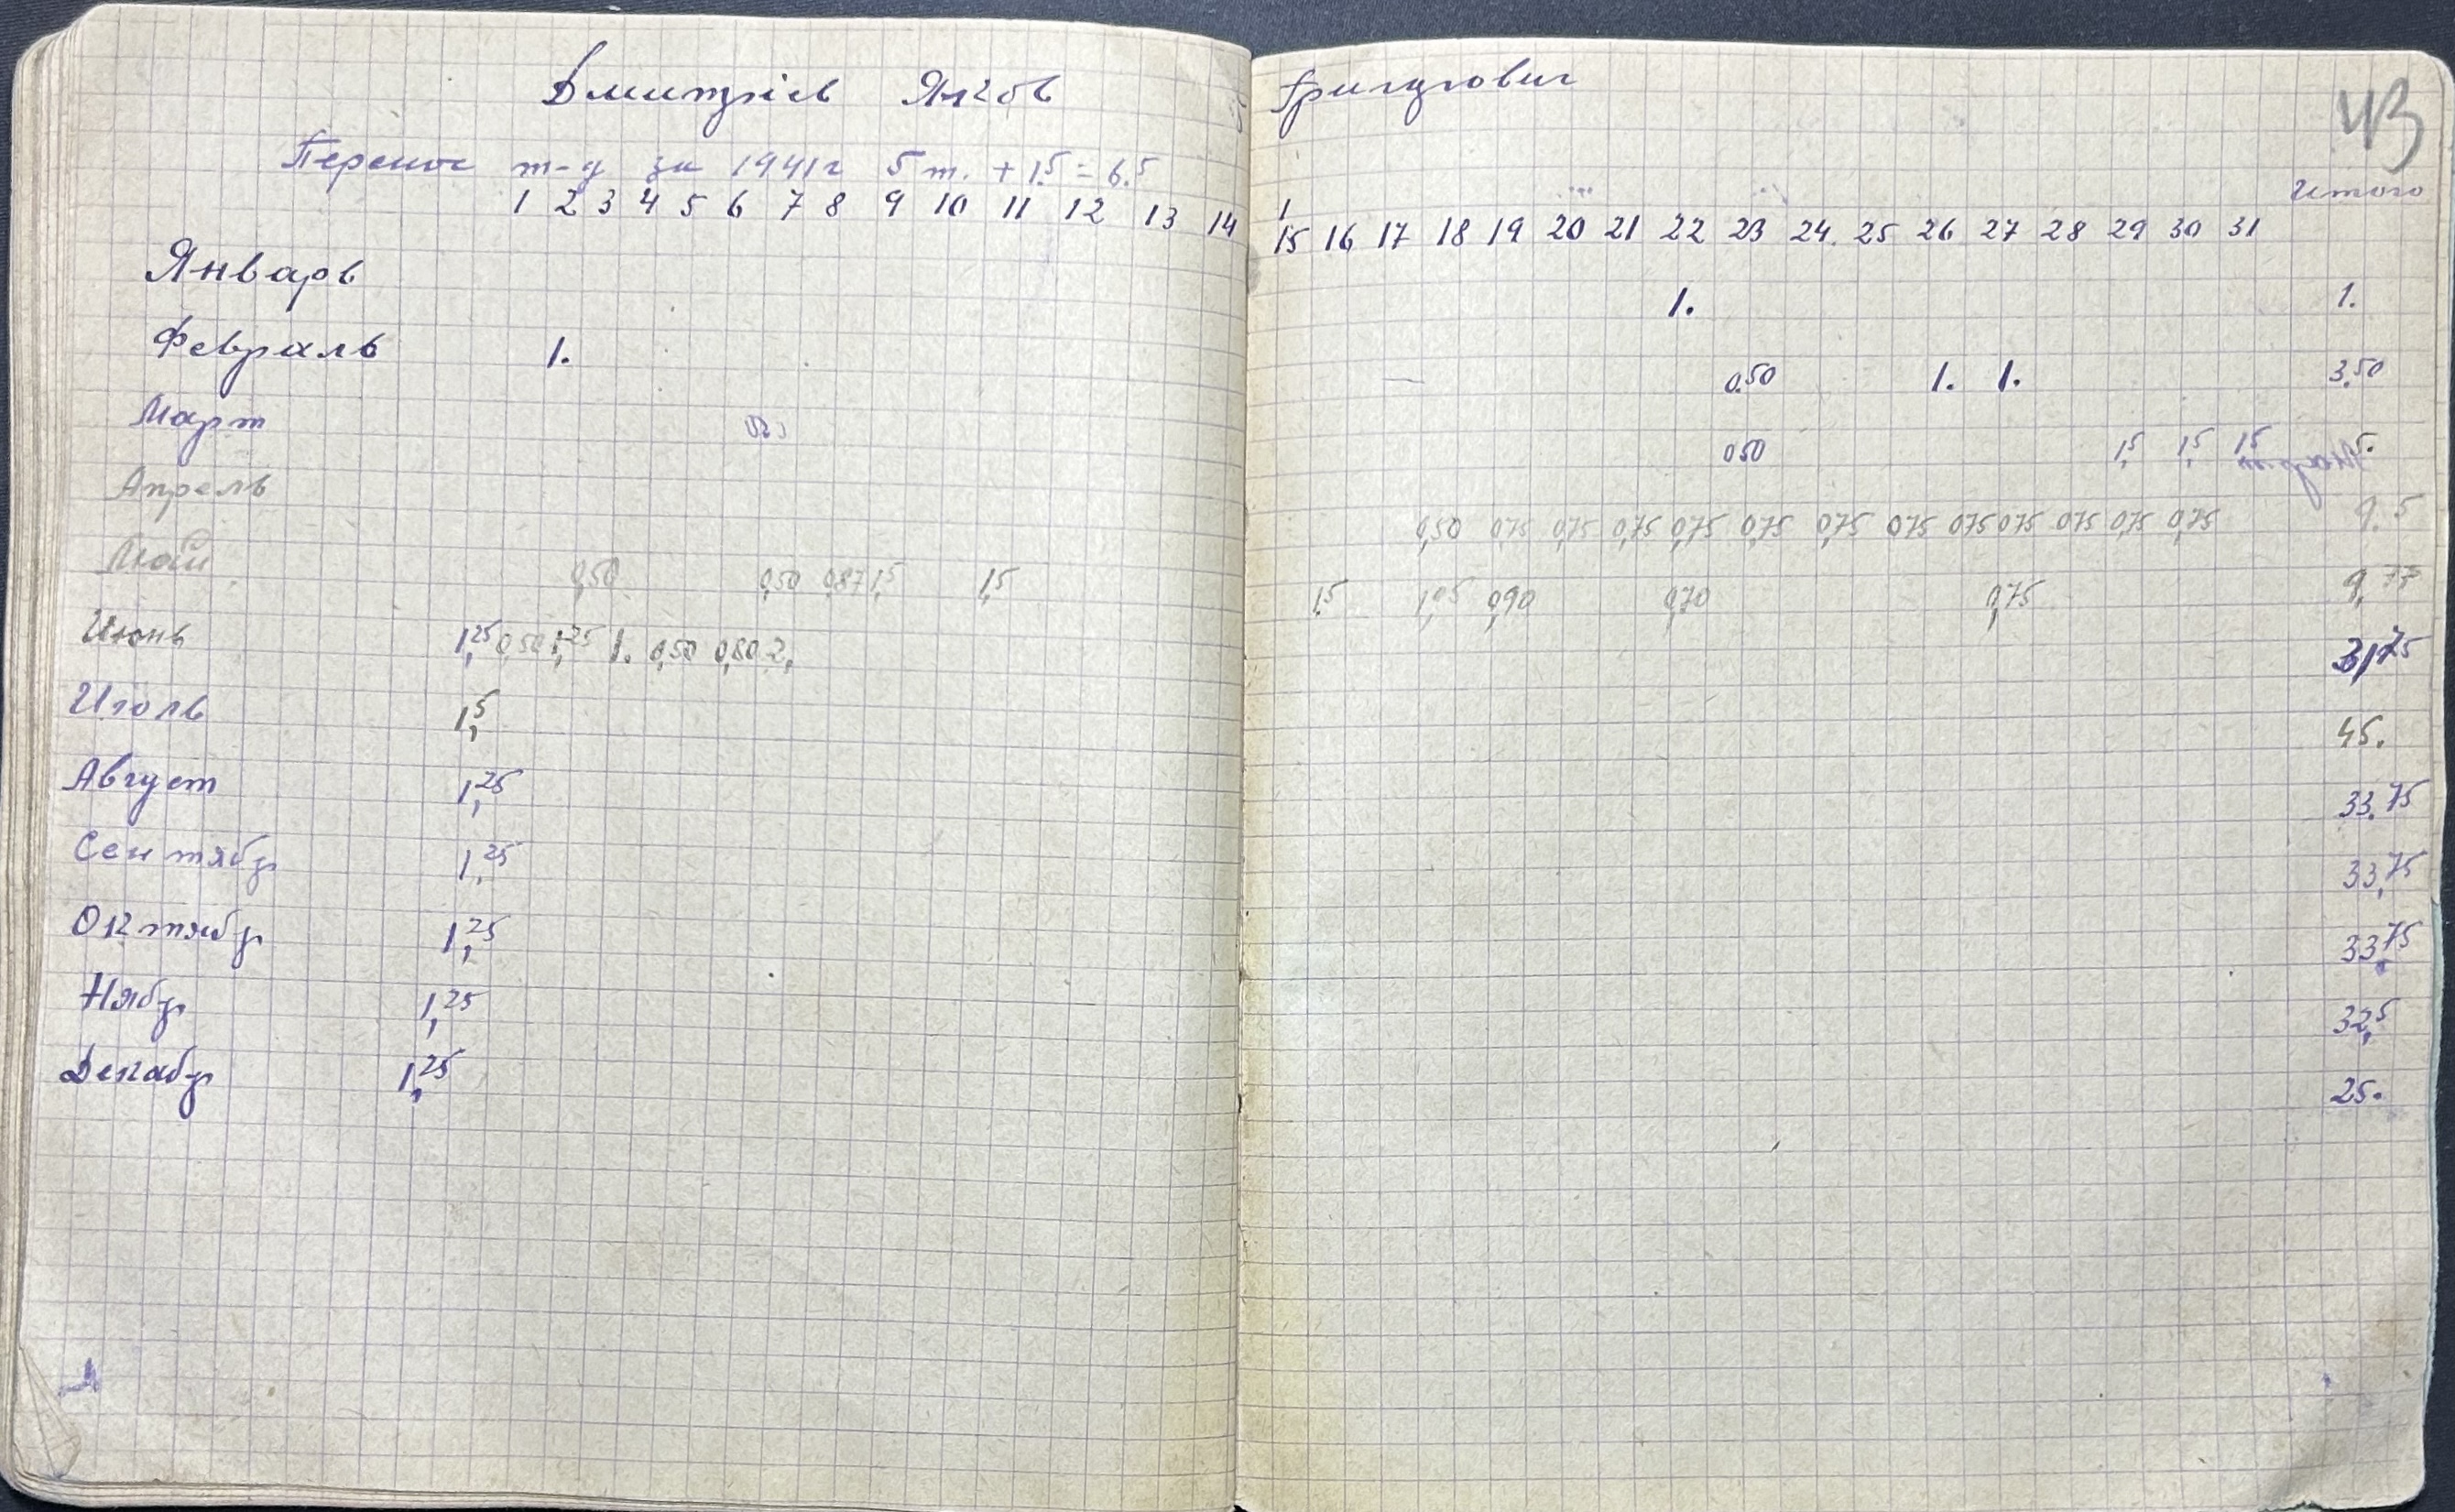 43
Дмитріев Яков Григорович
Перенос т-д за 1941г 5 т. + 1.5 = 6.5
Итого
1 2 3 4 5 6 7 8 9 10 11 12 13 14 15 16 17 18 19 20 21 22 23 24. 25 26 27 28 29 30 31
Январь 1. 1.
Февраль 1. 0.50 1. 1. 3,50
Март 0 50 1,5 1,5 1,5 5.
Апрель 0,50 0,75 0,75 0,75 0,75 0,75 0,75 0,75 075 075 075 0,75 0,75 9.5
Май 0,50 0,50 0,87 1,5 1,5 1,5 1,05 0,90 0,70 0,75 9,77
Июнь 1,25 0,50 1,25 1. 0,50 0,80 2,
Июль 1,5 45.
Август 1,25 33.75
Сентябр 1,25 33,75
Октябр 1,25 33,75
Нябр 1,25 32,5
Декабр 1,25 25.